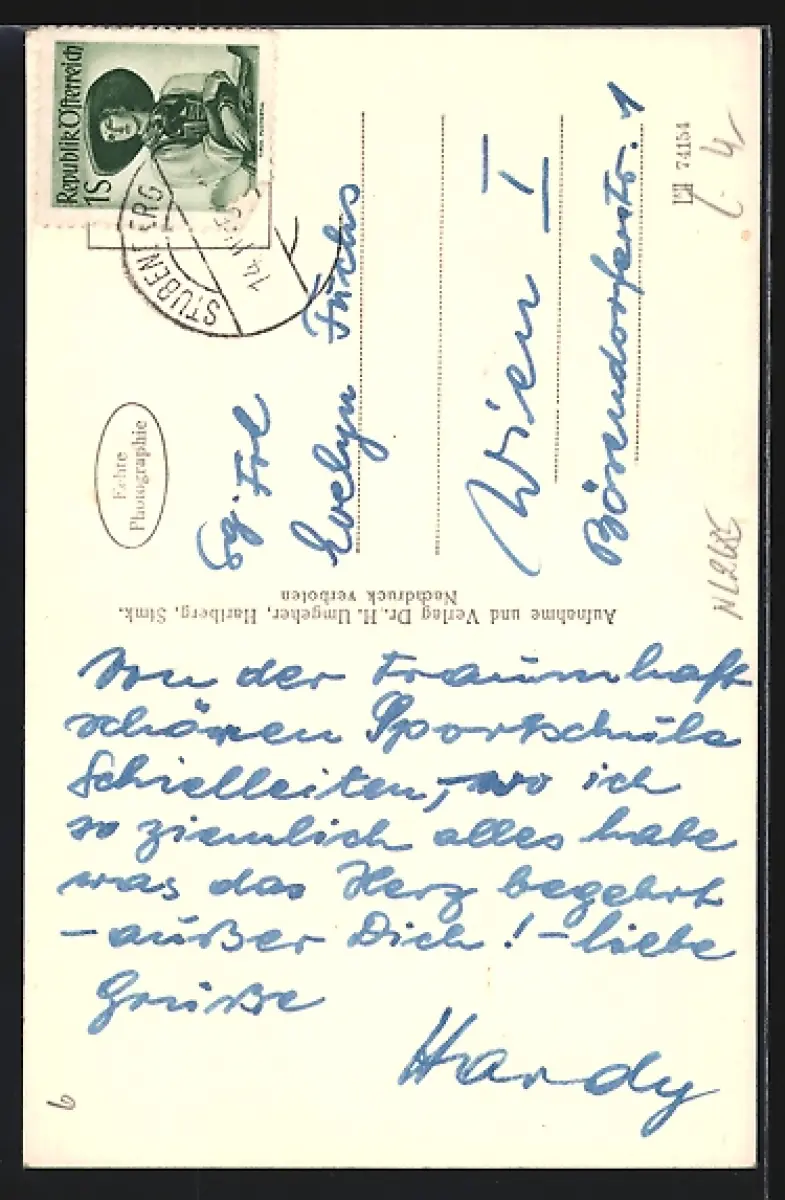 Republik Österreich
1 S
STUBENBERG
Echte
Photographie
Frl
Evelyn Fuchs
Wien I
Bösendorferstr. 1
74154
Aufnahme und Verlag Dr. H. Umgeher, Hartberg, Stmk.
Nachdruck verboten
Von der traumhaft
schönen Sportschule
Schielleiten, – wo ich
so ziemlich alles habe
was das Herz begehrt
– außer Dich! – liebe
Grüße
Hardy
6